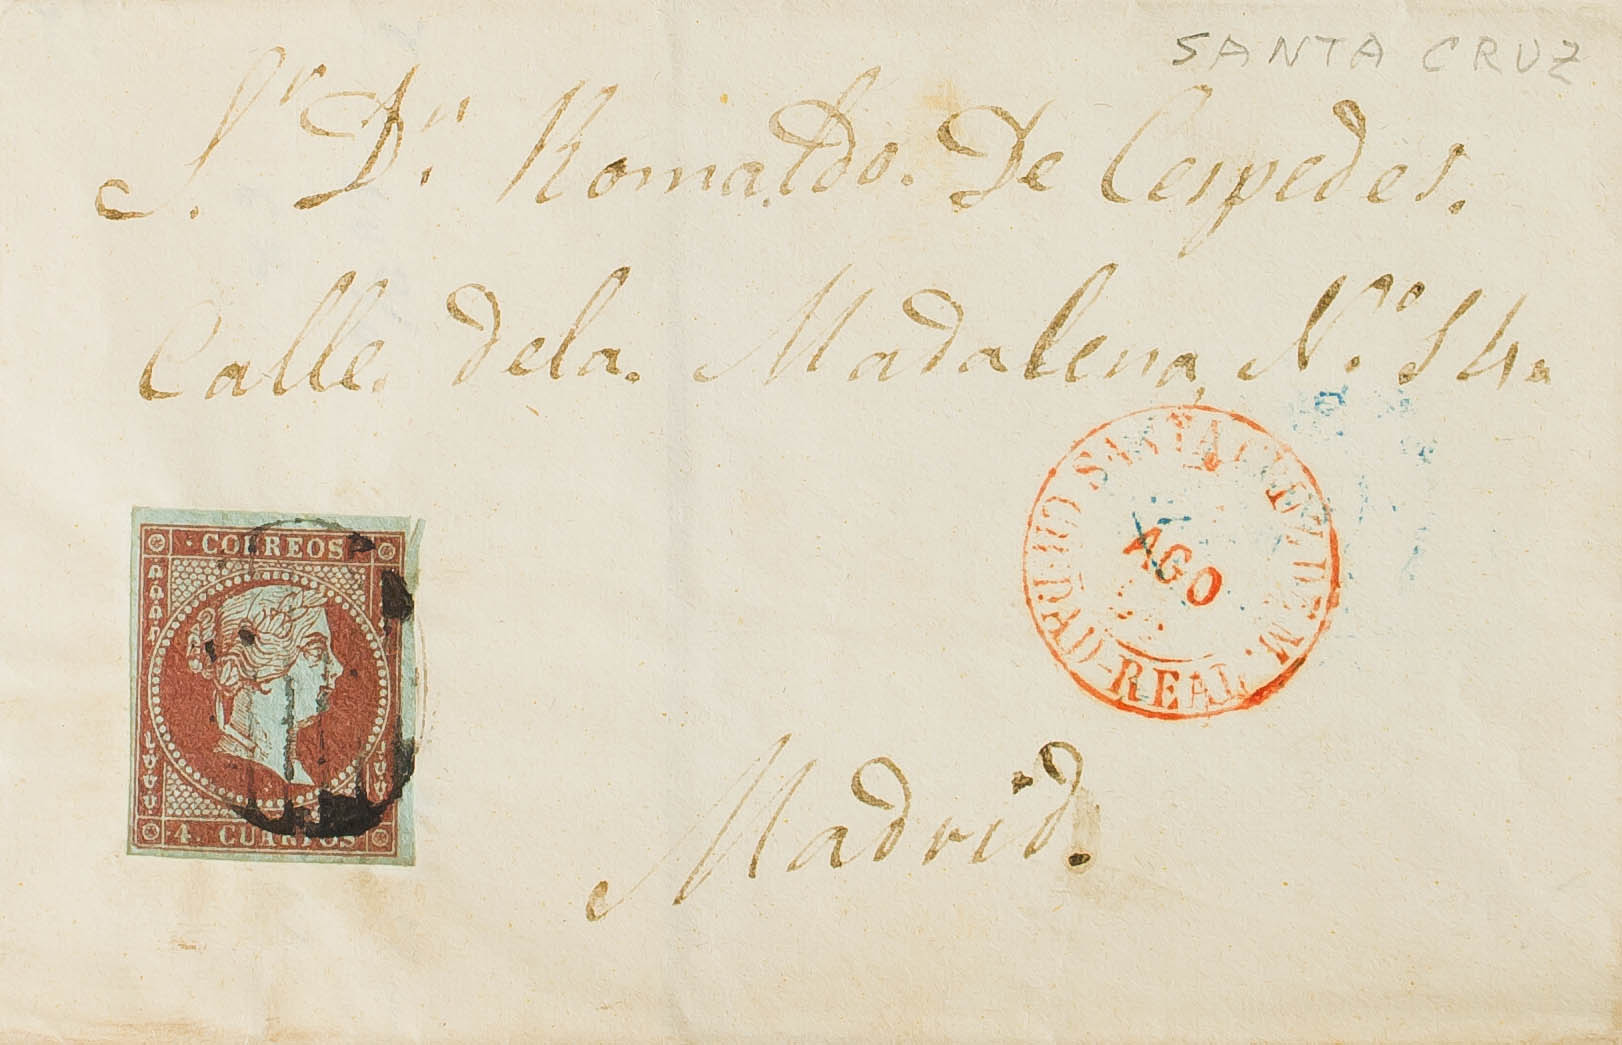 SANTA CRUZ
Sr. Dn. Romaldo. De Cespedes.
Calle. dela. Madalena, No. 14.
SANTA CRUZ DE M.
AGO
CIUDAD-REAL.
CORREOS
4. CUARTOS
Madrid.